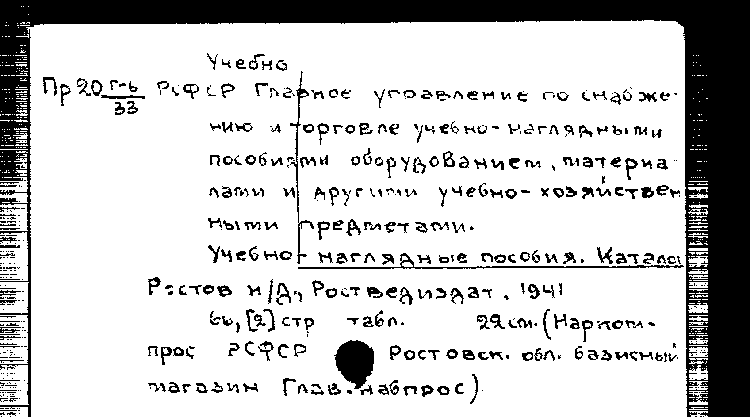 Учебно
Пр 20 г-ь/33 РСФСР Главное управление по снабже-
нию и торговле учебно-наглядными
пособиями оборудованием, материа-
лами и другими учебно-хозяйствен
ными предметами.
Учебно-наглядные пособия. Катало
Ростов н/Д., Ростведиздат, 1941
[2] стр табл. 22 см. (Нарком-
прос РСФСР Ростовск. обл. базисный
магазин Глав.набпрос)